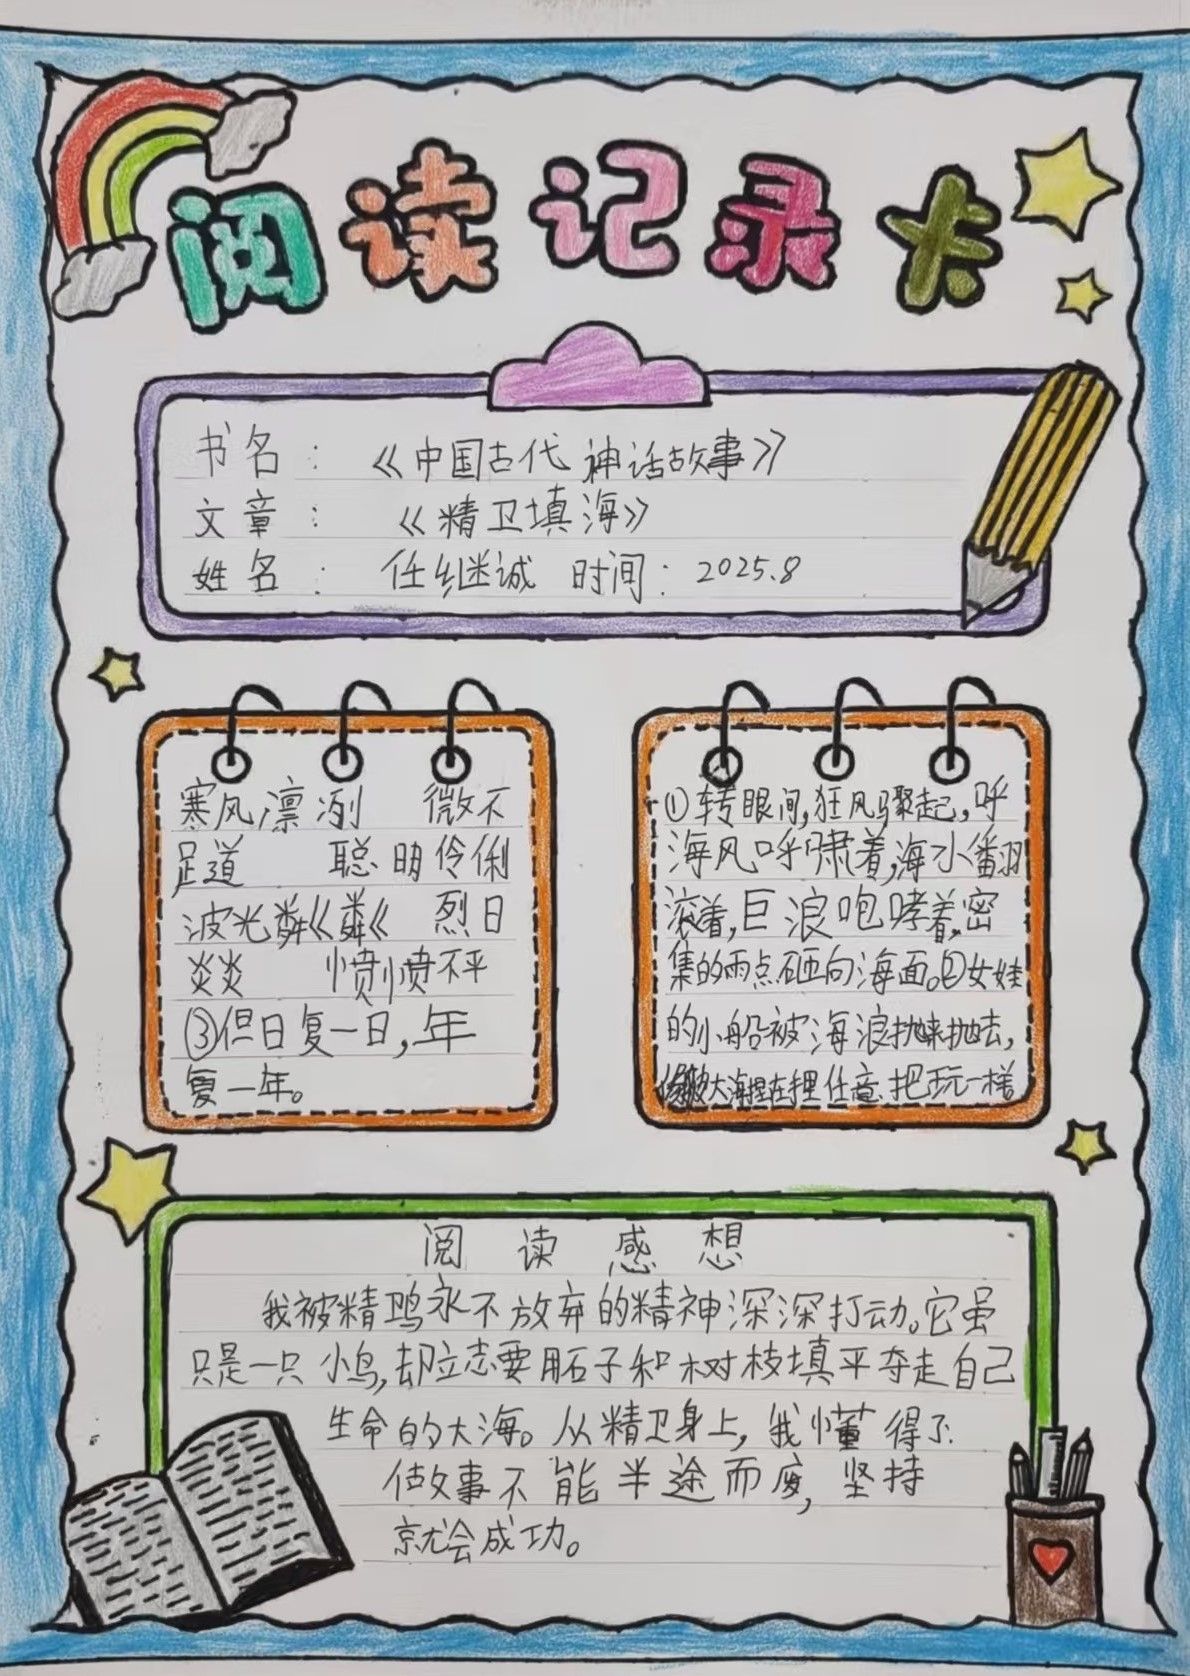 阅读记录卡
书名：《中国古代神话故事》
文章：《精卫填海》
姓名：任继诚 时间：2025.8
寒风凛冽 微不
足道 聪明伶俐
波光粼粼 烈日
炎炎 愤愤不平
③但日复一日，年
复一年。
①转眼间，狂风骤起，呼
海风呼啸着，海水翻
滚着，巨浪咆哮着，密
集的雨点砸向海面。②女娃
的小船被海浪抛来抛去，
大海捏在 任意把玩一样
阅读感想
我被精鸡永不放弃的精神深深打动。它虽
只是一只小鸟，却立志要用石子和树枝填平夺走自己
生命的大海。从精卫身上，我懂得了
做故事不能半途而废，坚持
就会成功。